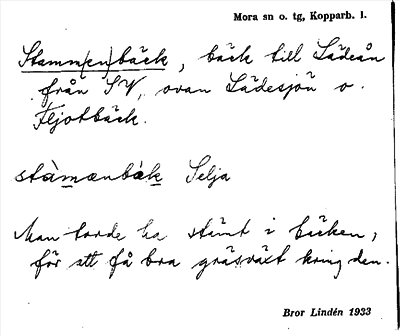 Mora sn o. tg, Kopparb. l.
Stamm(en)bäck, bäck till Lädeån
från SV, ovan Lädesjön o.
Fljotbäck.
stàmænbàk Selja
Man torde ha stämt i bäcken,
för att få bra gräsväxt kring den.
Bror Lindén 1933